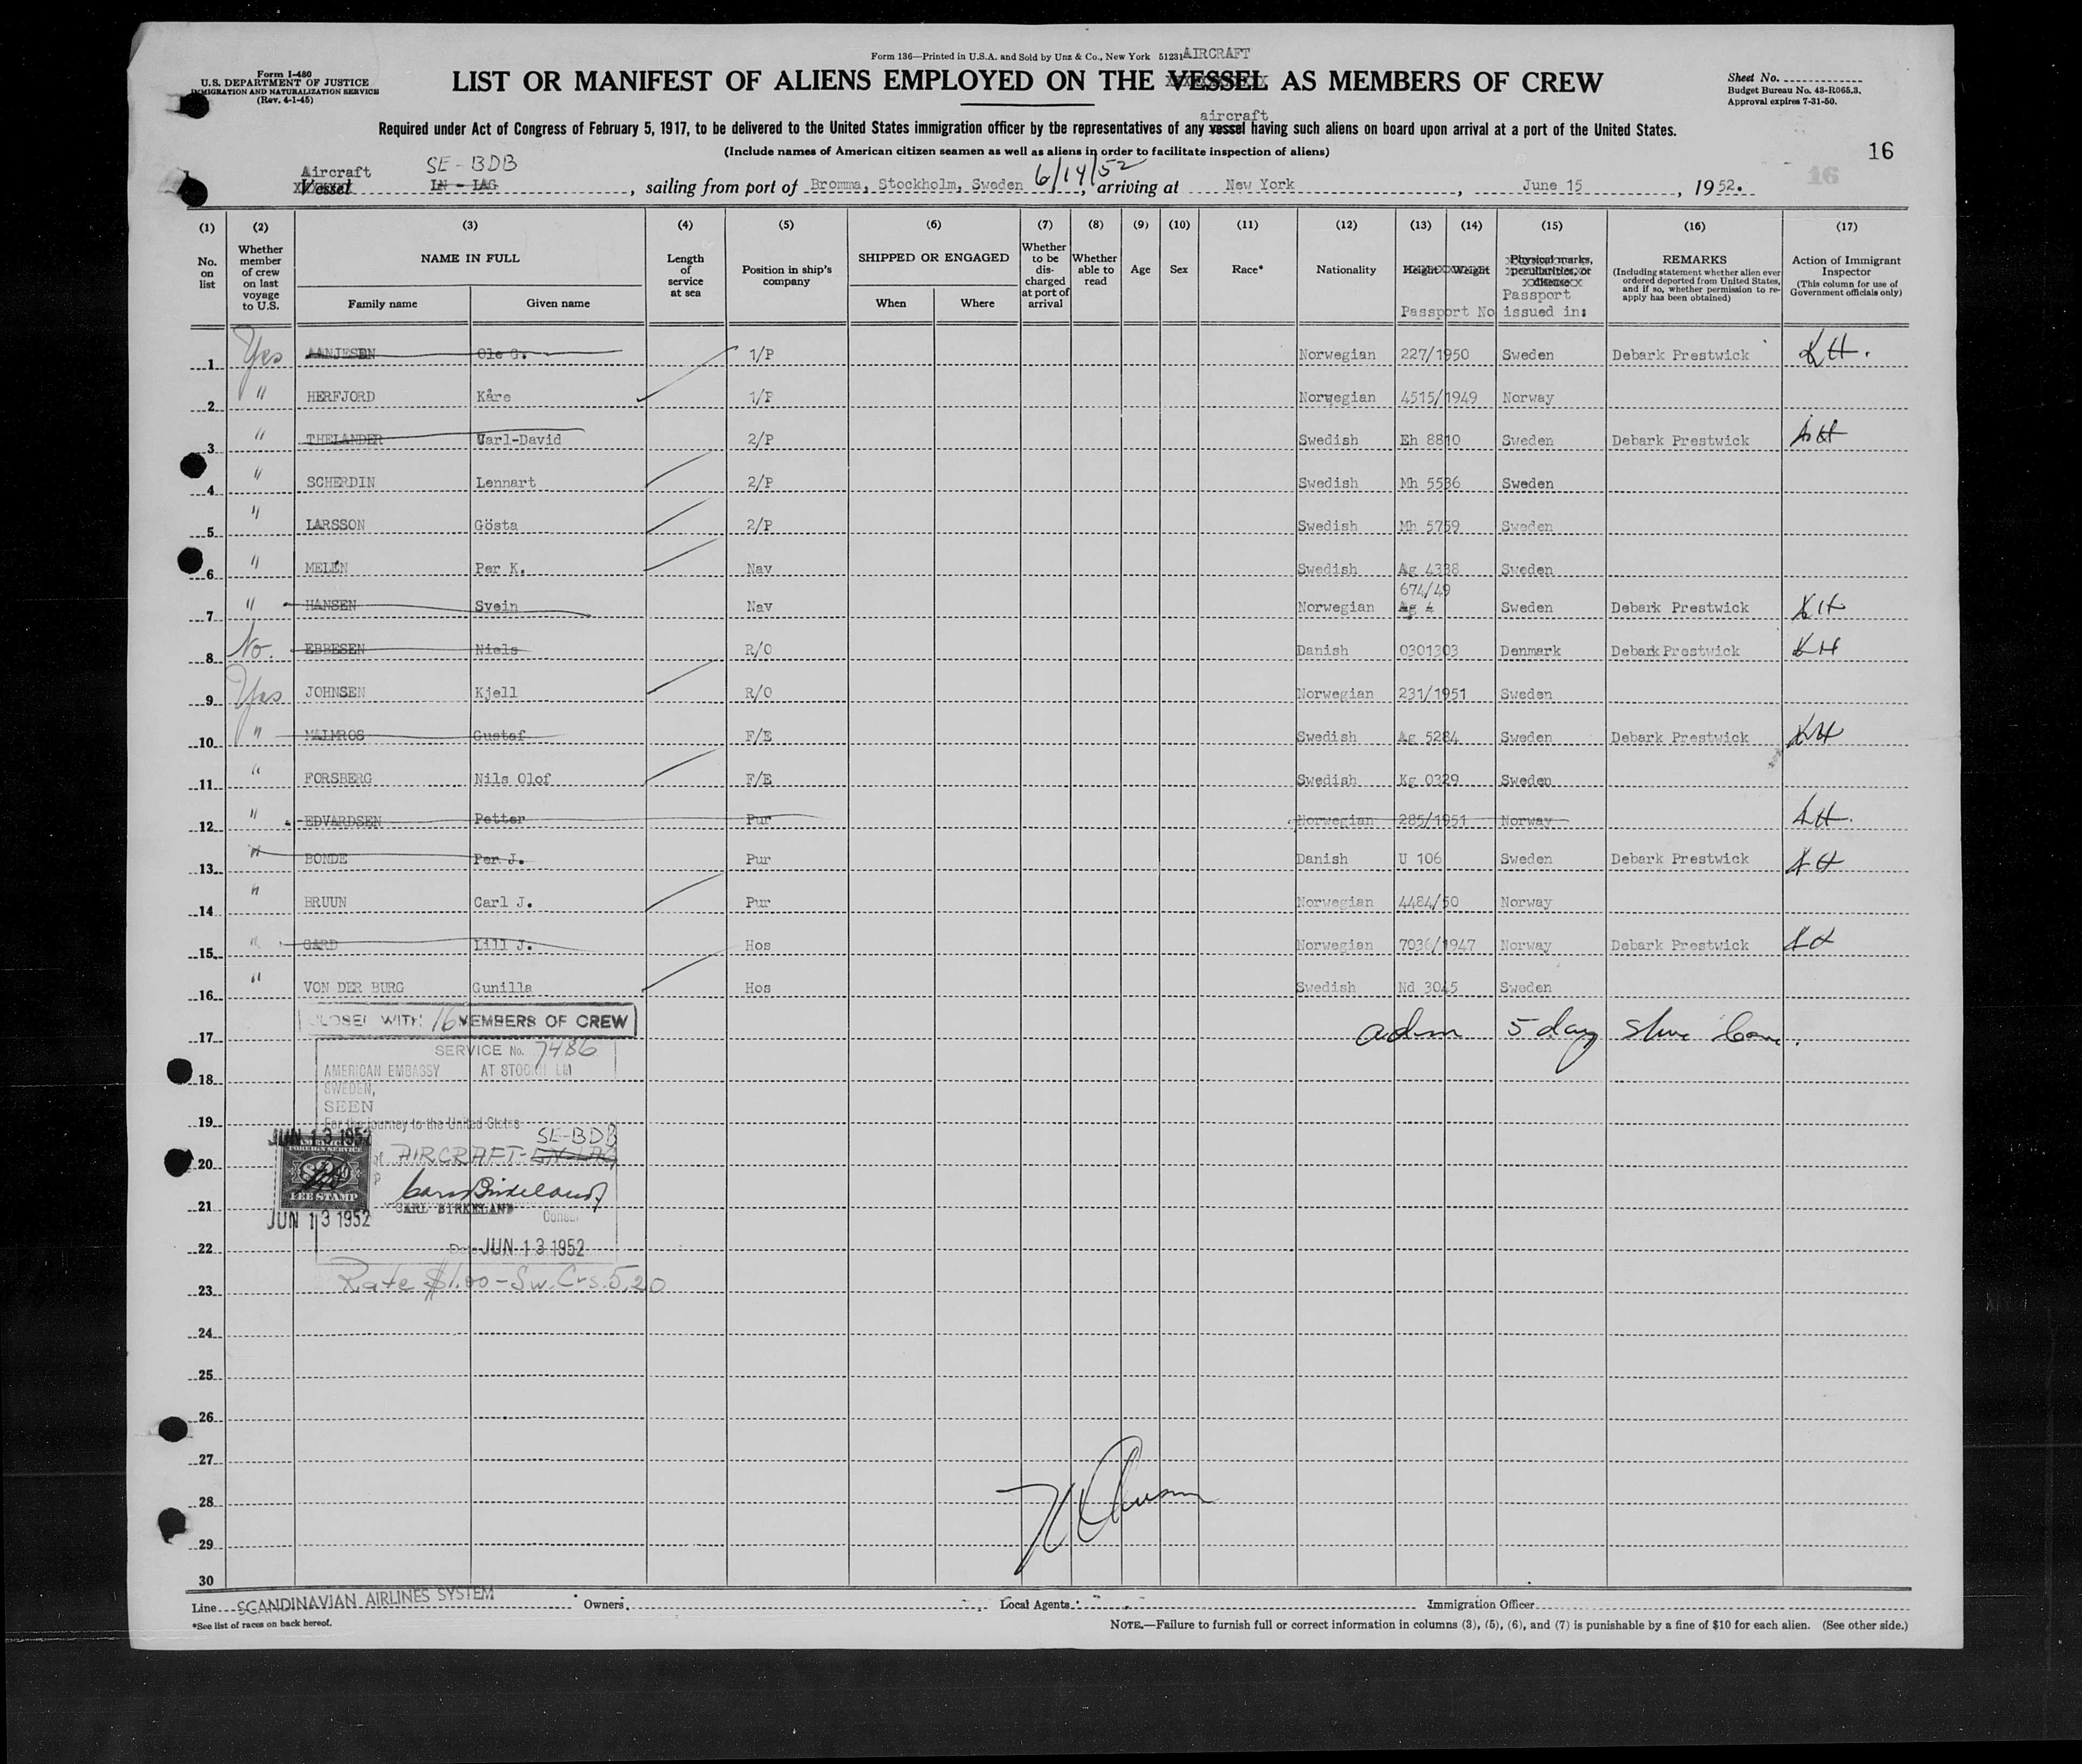 Form 136—Printed in U.S.A. and Sold by Unz & Co., New York 51231 AIRCRAFT
Form I-480
U.S. DEPARTMENT OF JUSTICE
IMMIGRATION AND NATURALIZATION SERVICE
(Rev. 4-1-45)
LIST OR MANIFEST OF ALIENS EMPLOYED ON THE VESSEL AS MEMBERS OF CREW
Sheet No.
Budget Bureau No. 43-R065.3.
Approval expires 7-31-50.
aircraft
Required under Act of Congress of February 5, 1917, to be delivered to the United States immigration officer by the representatives of any vessel having such aliens on board upon arrival at a port of the United States.
(Include names of American citizen seamen as well as aliens in order to facilitate inspection of aliens)
16
16
Aircraft SE-BDB 6/14/52
Vessel LN - LAG, sailing from port of Bromma, Stockholm, Sweden, arriving at New York, June 15, 1952.
(1) (2) (3) (4) (5) (6) (7) (8) (9) (10) (11) (12) (13) (14) (15) (16) (17)
No. on list
Whether member of crew on last voyage to U.S.
NAME IN FULL
Family name Given name
Length of service at sea
Position in ship's company
SHIPPED OR ENGAGED
When Where
Whether to be discharged at port of arrival
Whether able to read
Age
Sex
Race*
Nationality
Height Weight
Passport No
Physical marks, peculiarities, or disease
Passport issued in:
REMARKS
(Including statement whether alien ever ordered deported from United States, and if so, whether permission to reapply has been obtained)
Action of Immigrant Inspector
(This column for use of Government officials only)
1 Yes AANJESEN Ole G. 1/P Norwegian 227/1950 Sweden Debark Prestwick KH.
2 " HERFJORD Kåre 1/P Norwegian 4515/1949 Norway
3 " THELANDER Carl-David 2/P Swedish Eh 8810 Sweden Debark Prestwick KH
4 " SCHERDIN Lennart 2/P Swedish Mh 5536 Sweden
5 " LARSSON Gösta 2/P Swedish Mh 5759 Sweden
6 " MELÉN Per K. Nav Swedish Ag 4338 Sweden
674/49
7 " HANSEN Svein Nav Norwegian Ag 4 Sweden Debark Prestwick KH
8 No. EBBESEN Niels R/O Danish 0301303 Denmark Debark Prestwick KH
9 Yes JOHNSEN Kjell R/O Norwegian 231/1951 Sweden
10 " MALMROS Gustaf F/E Swedish Ag 5284 Sweden Debark Prestwick KH
11 " FORSBERG Nils Olof F/E Swedish Kg 0329 Sweden
12 " EDVARDSEN Petter Pur Norwegian 285/1951 Norway KH.
13 " BONDE Per J. Pur Danish U 106 Sweden Debark Prestwick KH
14 " BRUUN Carl J. Pur Norwegian 4484/50 Norway
15 " GARD Lill J. Hos Norwegian 7036/1947 Norway Debark Prestwick KH
16 " VON DER BURG Gunilla Hos Swedish Nd 3045 Sweden
CLOSED WITH 16 MEMBERS OF CREW
17 adm 5 day
SERVICE No. 7486
AMERICAN EMBASSY AT STOCKHOLM
18
SWEDEN,
SEEN
19 For the journey to the United States
JUN 13 1952
SE-BDB
AMERICAN
FOREIGN SERVICE
20 of AIRCRAFT-LN-LAG
FEE STAMP
Carl Birkeland
21 CARL BIRKELAND
JUN 13 1952 Consul
22 Date JUN 13 1952
23 Rate $1.00 - Sw. Crs. 5.20
24
25
26
27
28
29
30
Line SCANDINAVIAN AIRLINES SYSTEM Owners Local Agents Immigration Officer
*See list of races on back hereof.
NOTE.—Failure to furnish full or correct information in columns (3), (5), (6), and (7) is punishable by a fine of $10 for each alien. (See other side.)